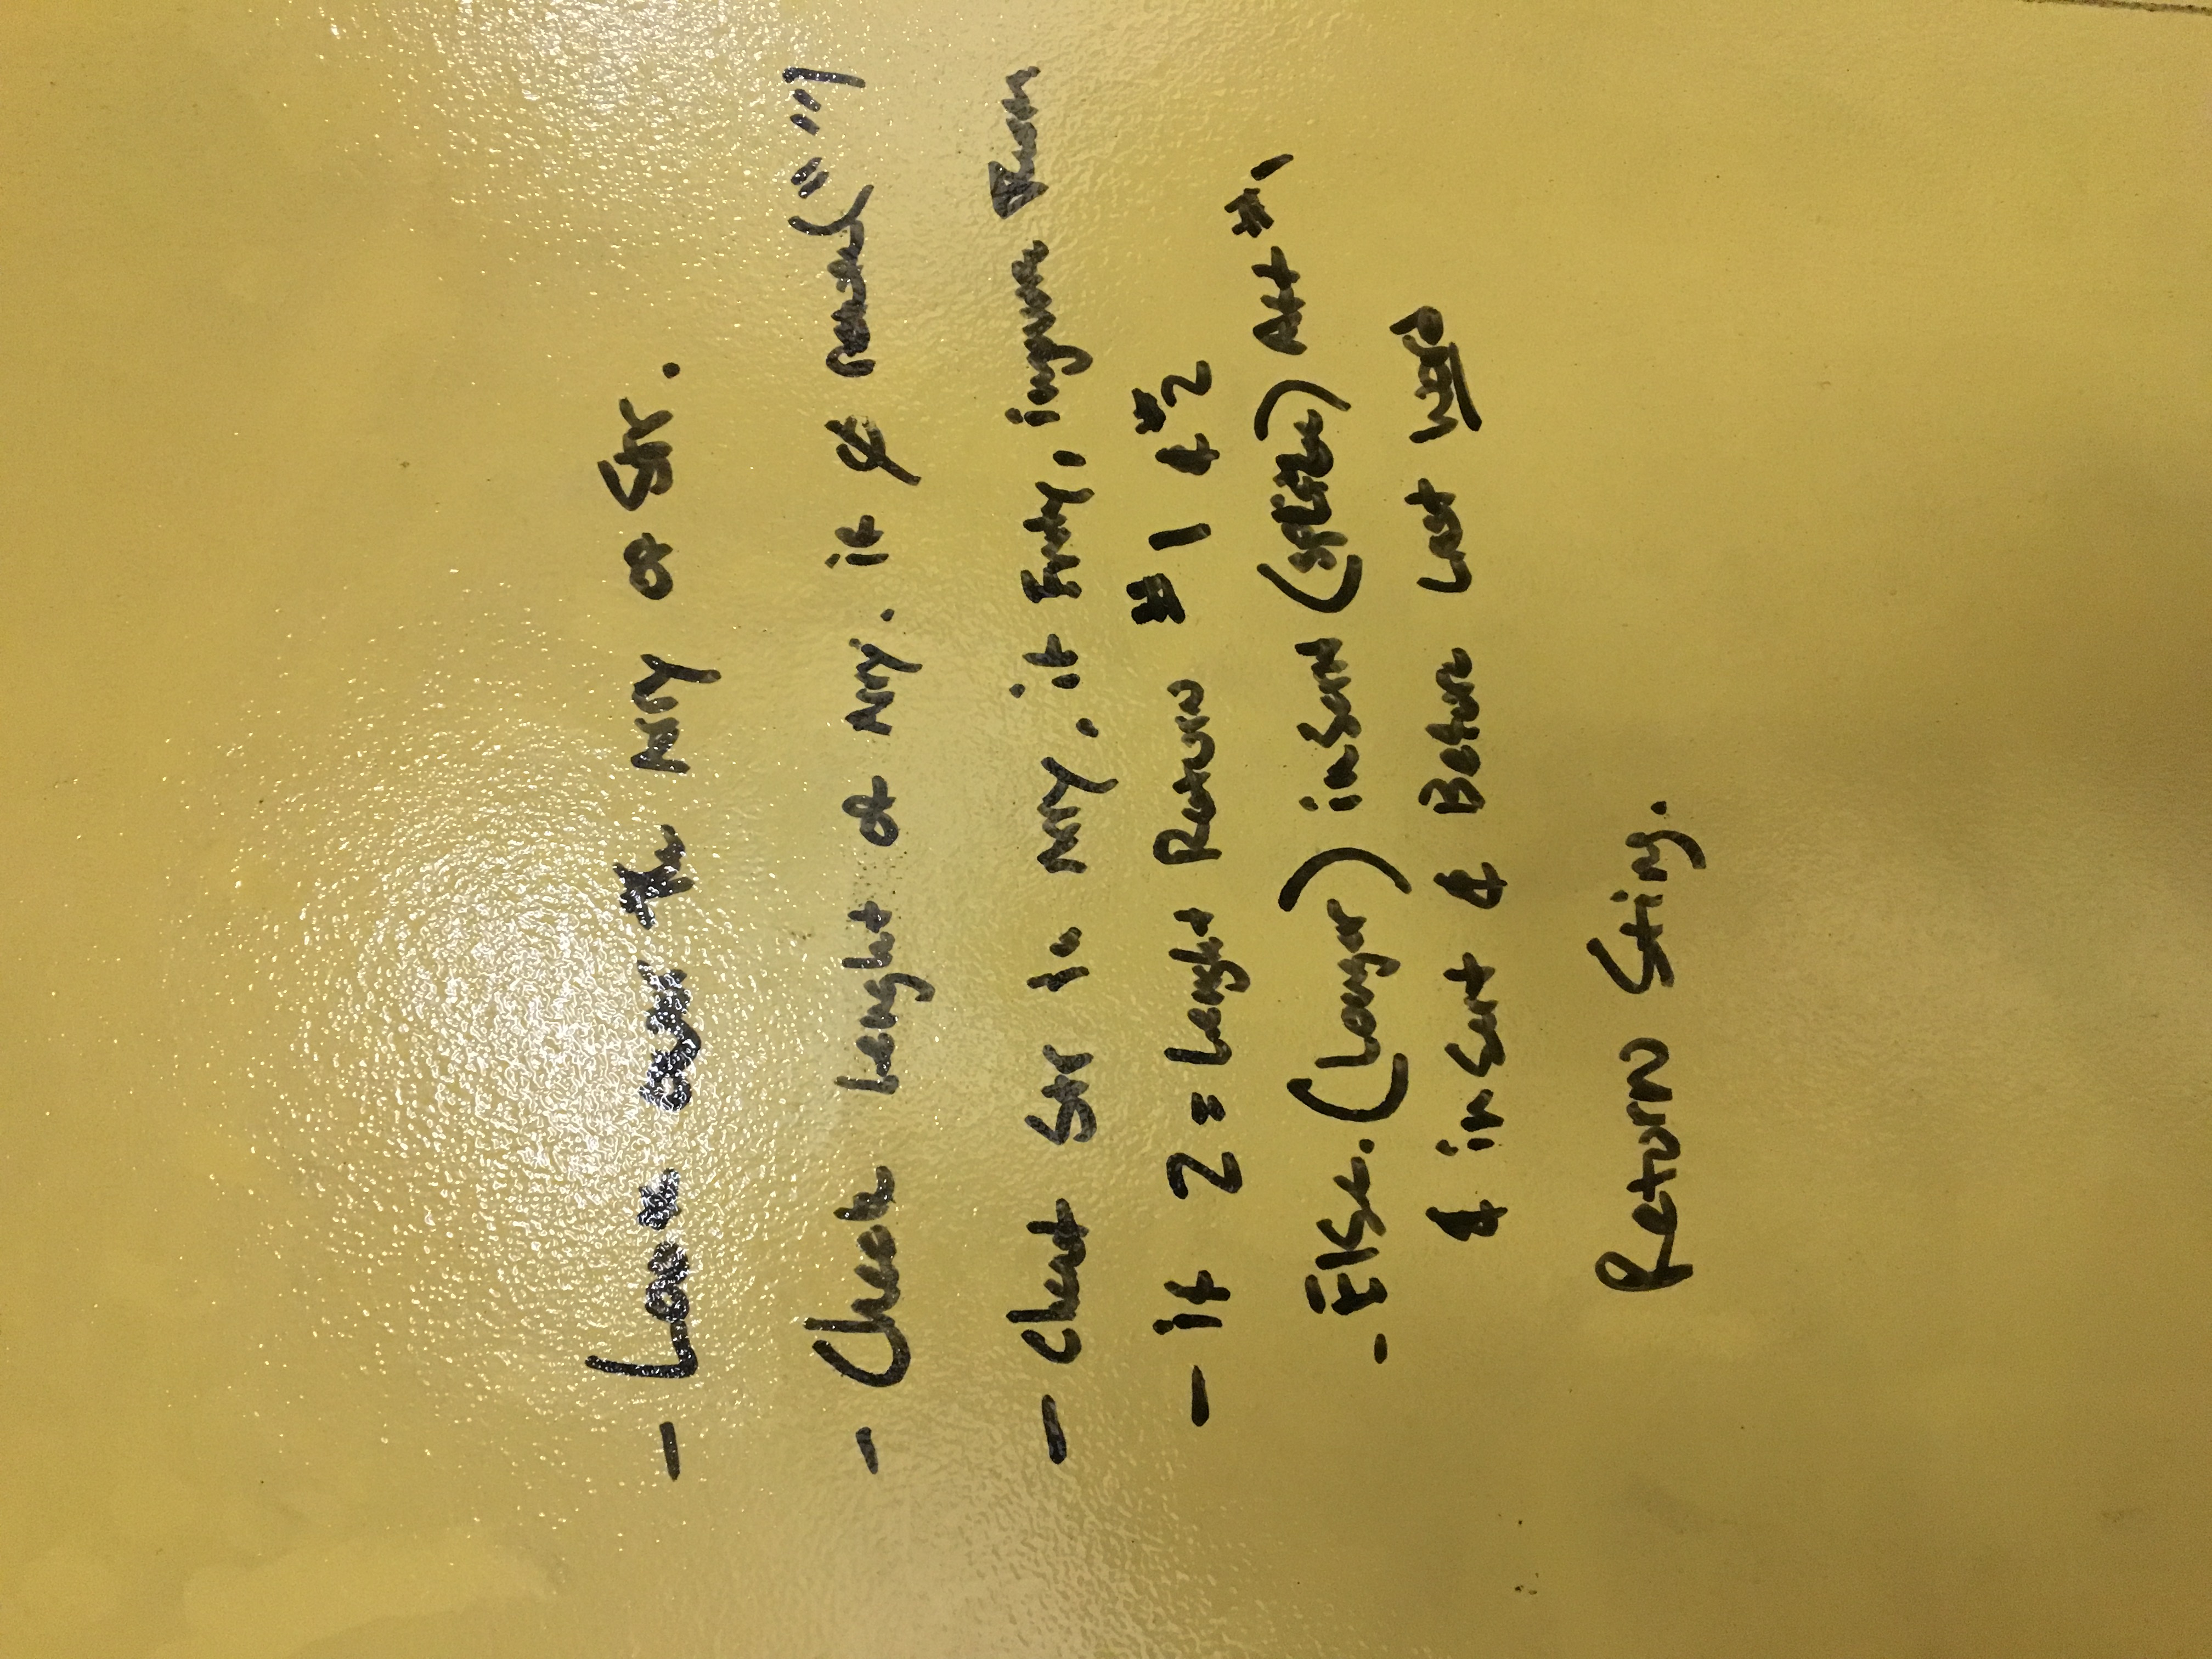 - Look over the Arry of Str.
- Check Lenght of Arry. if ø return(" ")
- Check Str in Arry, if Emty, ingnore Them
- if 2 = Lenght Return #1 & #2
- Else. (Longer) insert (splice) Aft #1
& insert & Before Last Word
Return Sting.